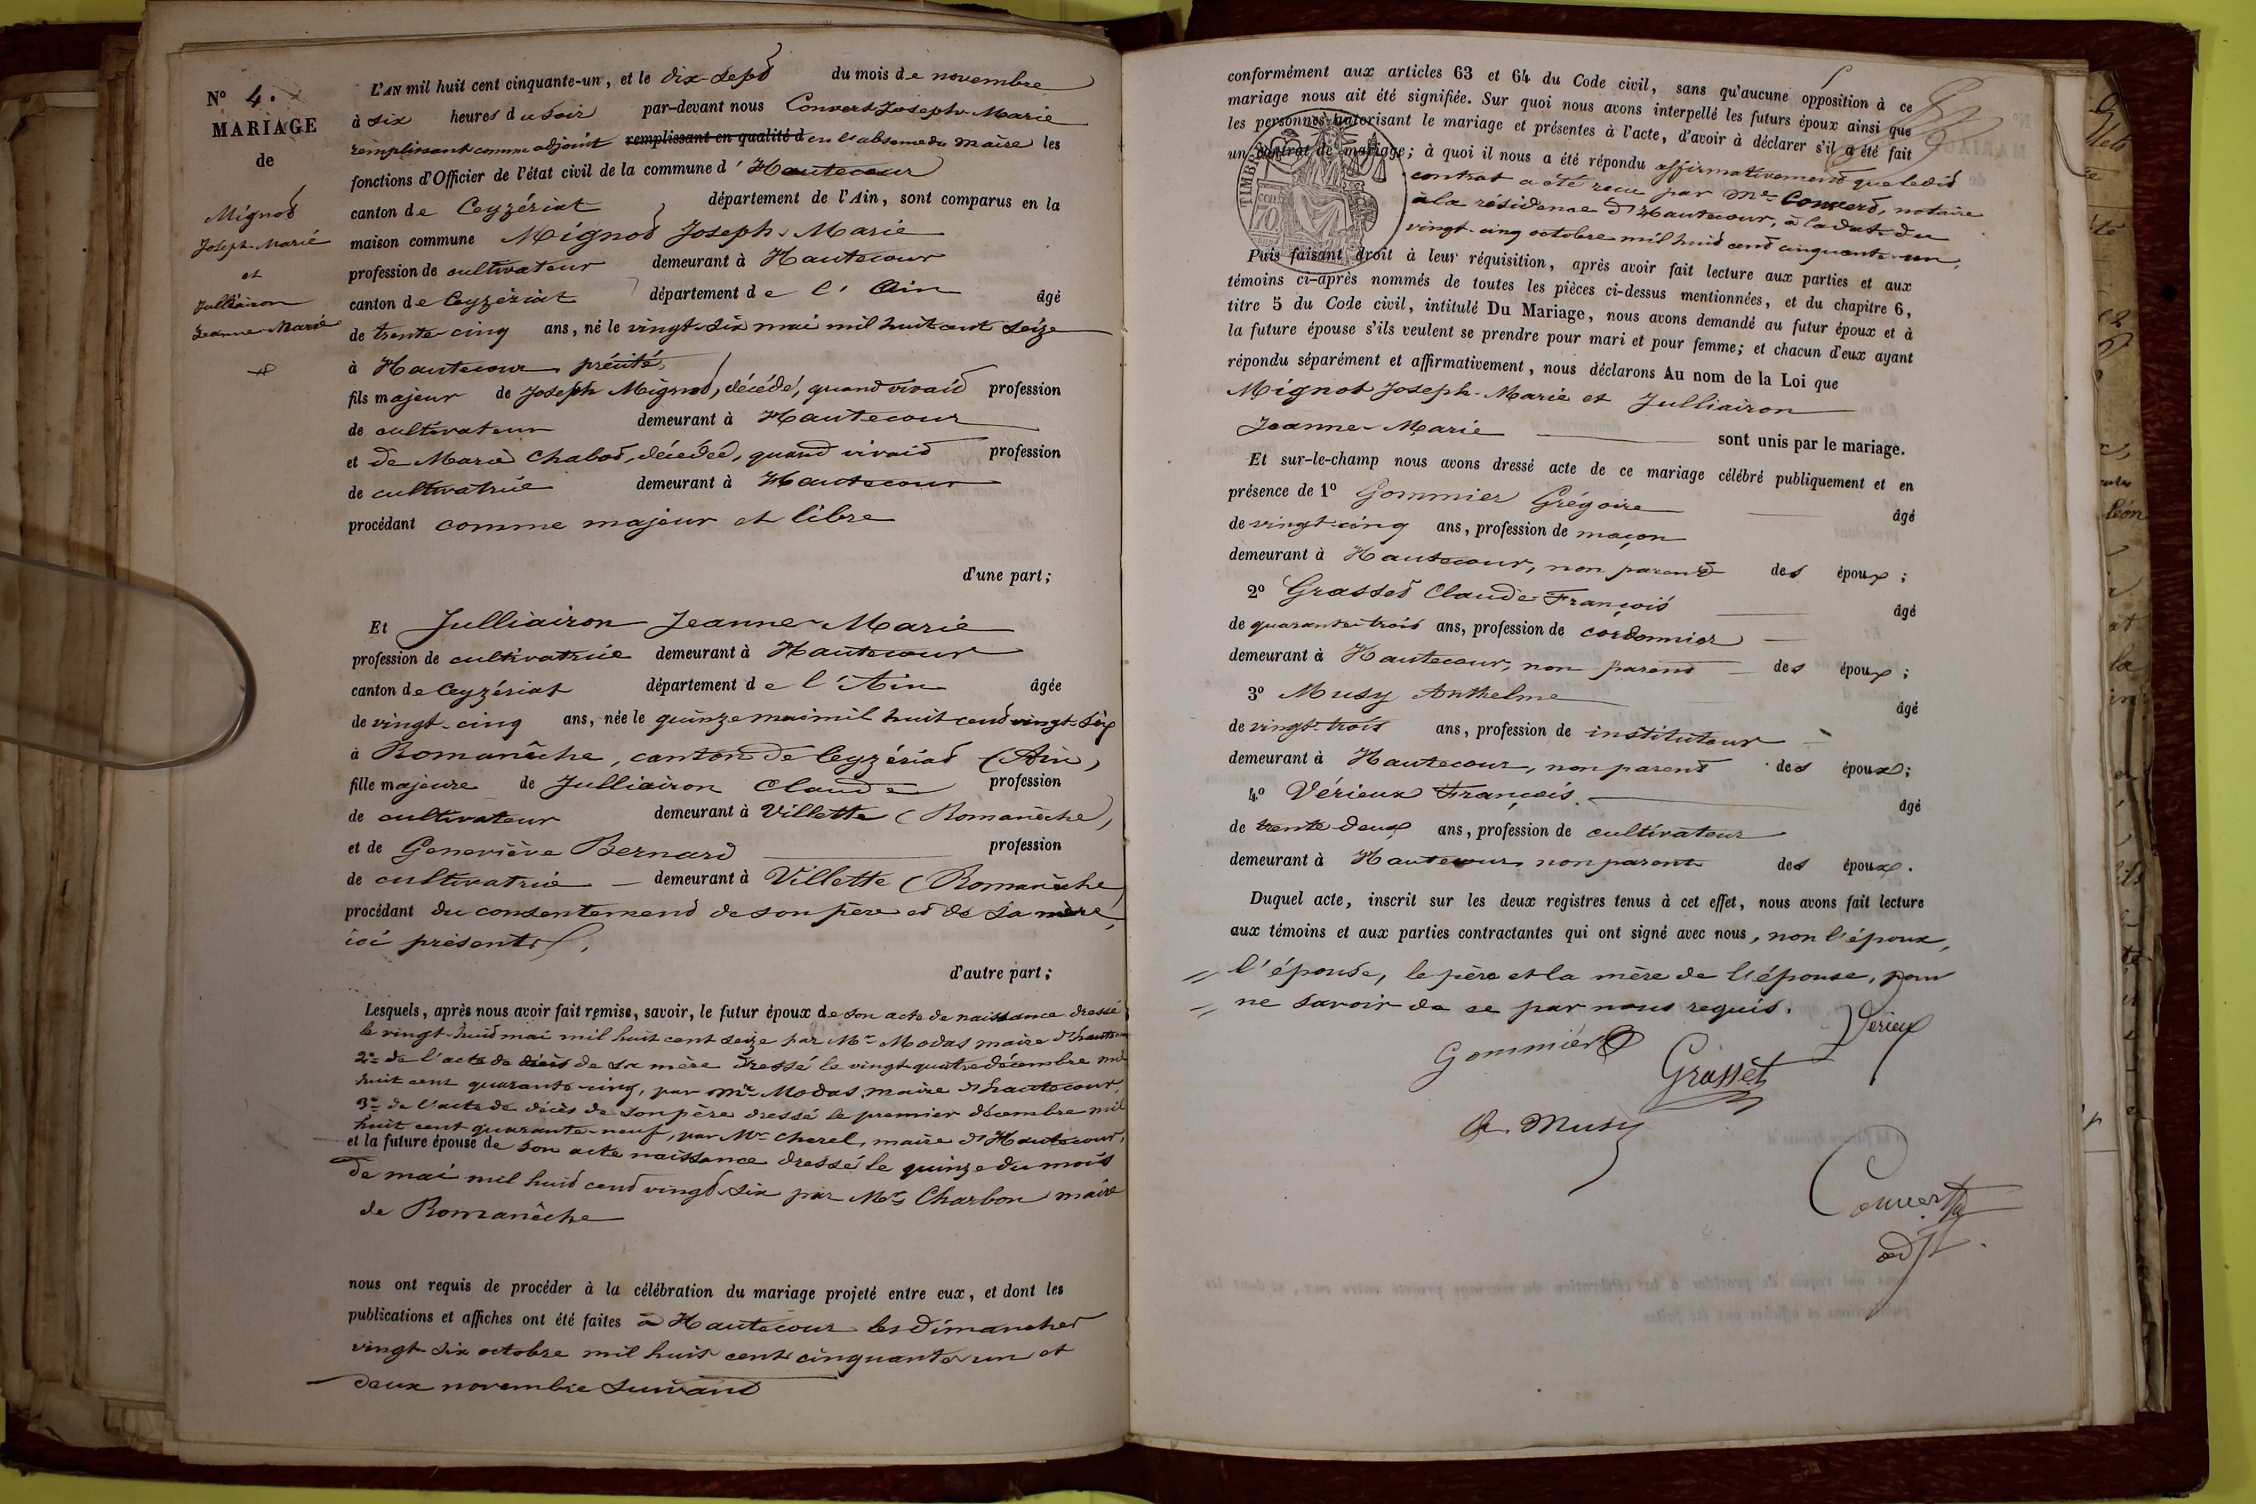 N° 4.
MARIAGE
de
Mignot
Joseph-Marie
et
Julliairon
Jeanne-Marie
L'AN mil huit cent cinquante-un, et le dix-sept du mois de novembre
à six heures du soir par-devant nous Convert Joseph-Marie
remplissant comme adjoint remplissant en qualité d en l'absence du maire les
fonctions d'Officier de l'état civil de la commune d'Hautecour
canton de Ceyzériat département de l'Ain, sont comparus en la
maison commune Mignot Joseph-Marie
profession de cultivateur demeurant à Hautecour
canton de Ceyzériat département de l'Ain âgé
de trente-cinq ans, né le vingt-six mai mil huit cent seize
à Hautecour précité,
fils majeur de Joseph Mignot, décédé, quand vivait profession
de cultivateur demeurant à Hautecour
et de Marie Chabot, décédée, quand vivait profession
de cultivatrice demeurant à Hautecour
procédant comme majeur et libre
d'une part;
Et Julliairon Jeanne-Marie
profession de cultivatrice demeurant à Hautecour
canton de Ceyzériat département de l'Ain âgée
de vingt-cinq ans, née le quinze mai mil huit cent vingt-six
à Romanèche, canton de Ceyzériat (Ain)
fille majeure de Julliairon Claude profession
de cultivateur demeurant à Villette (Romanèche)
et de Geneviève Bernard profession
de cultivatrice demeurant à Villette (Romanèche)
procédant du consentement de son père et de sa mère,
ici présents,
d'autre part;
Lesquels, après nous avoir fait remise, savoir, le futur époux de son acte de naissance dressé
le vingt-huit mai mil huit cent seize par Mr Modas maire d'hautecour
2° de l'acte de décès de sa mère dressé le vingt-quatre décembre mil
huit cent quarante-cinq, par Mr Modas, maire d'hautecour,
3° de l'acte de décès de son père dressé le premier décembre mil
huit cent quarante-neuf, par Mr Charel, maire d'Hautecour,
et la future épouse de son acte naissance dressé le quinze du mois
de mai mil huit cent vingt-six par Mr Charbon maire
de Romanèche
nous ont requis de procéder à la célébration du mariage projeté entre eux, et dont les
publications et affiches ont été faites à Hautecour les dimanches
vingt-six octobre mil huit cent cinquante-un et
deux novembre suivant
conformément aux articles 63 et 64 du Code civil, sans qu'aucune opposition à ce
mariage nous ait été signifiée. Sur quoi nous avons interpellé les futurs époux ainsi que
les personnes autorisant le mariage et présentes à l'acte, d'avoir à déclarer s'il a été fait
un contrat de mariage; à quoi il nous a été répondu affirmativement que ledit
contrat a été reçu par Me Convert, notaire
à la résidence d'Hautecour, à la date du
vingt-cinq octobre mil huit cent cinquante-un,
TIMBRE
70
Puis faisant droit à leur réquisition, après avoir fait lecture aux parties et aux
témoins ci-après nommés de toutes les pièces ci-dessus mentionnées, et du chapitre 6,
titre 5 du Code civil, intitulé Du Mariage, nous avons demandé au futur époux et à
la future épouse s'ils veulent se prendre pour mari et pour femme; et chacun d'eux ayant
répondu séparément et affirmativement, nous déclarons Au nom de la Loi que
Mignot Joseph-Marie et Julliairon
Jeanne-Marie sont unis par le mariage.
Et sur-le-champ nous avons dressé acte de ce mariage célébré publiquement et en
présence de 1° Gommier Grégoire âgé
de vingt-cinq ans, profession de maçon
demeurant à Hautecour, non parent des époux;
2° Grasset Claude François âgé
de quarante-trois ans, profession de cordonnier
demeurant à Hautecour, non parent des époux;
3° Musy Anthelme âgé
de vingt-trois ans, profession de instituteur
demeurant à Hautecour, non parent des époux;
4° Vérieux François. âgé
de trente-deux ans, profession de cultivateur
demeurant à Hautecour, non parent des époux.
Duquel acte, inscrit sur les deux registres tenus à cet effet, nous avons fait lecture
aux témoins et aux parties contractantes qui ont signé avec nous, non l'époux,
l'épouse, le père et la mère de l'épouse, pour
ne savoir de ce par nous requis.
Vérieux
Gommier
Grasset
A. Musy
Convert
adjt.